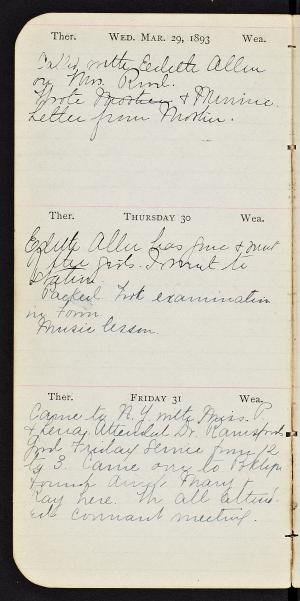 Ther. WED. MAR. 29, 1893 Wea.
Call'd with Eedith Allen
on Mrs.
Wrote Mother & Minnie.
Letter from Mother.
Ther. THURSDAY 30 Wea.
Eedith Allen has gone & most
of the girls. I went to
Station
Packed. Took examination
in Form
Music lesson.
Ther. FRIDAY 31 Wea.
Came to N. Y. with Miss. P.
& Lena. Attended Dr. Rainsford
Good Friday Service from 12
to 3. Came on to
& found Mary &
Ray here. We all attend
ed covenant meeting.